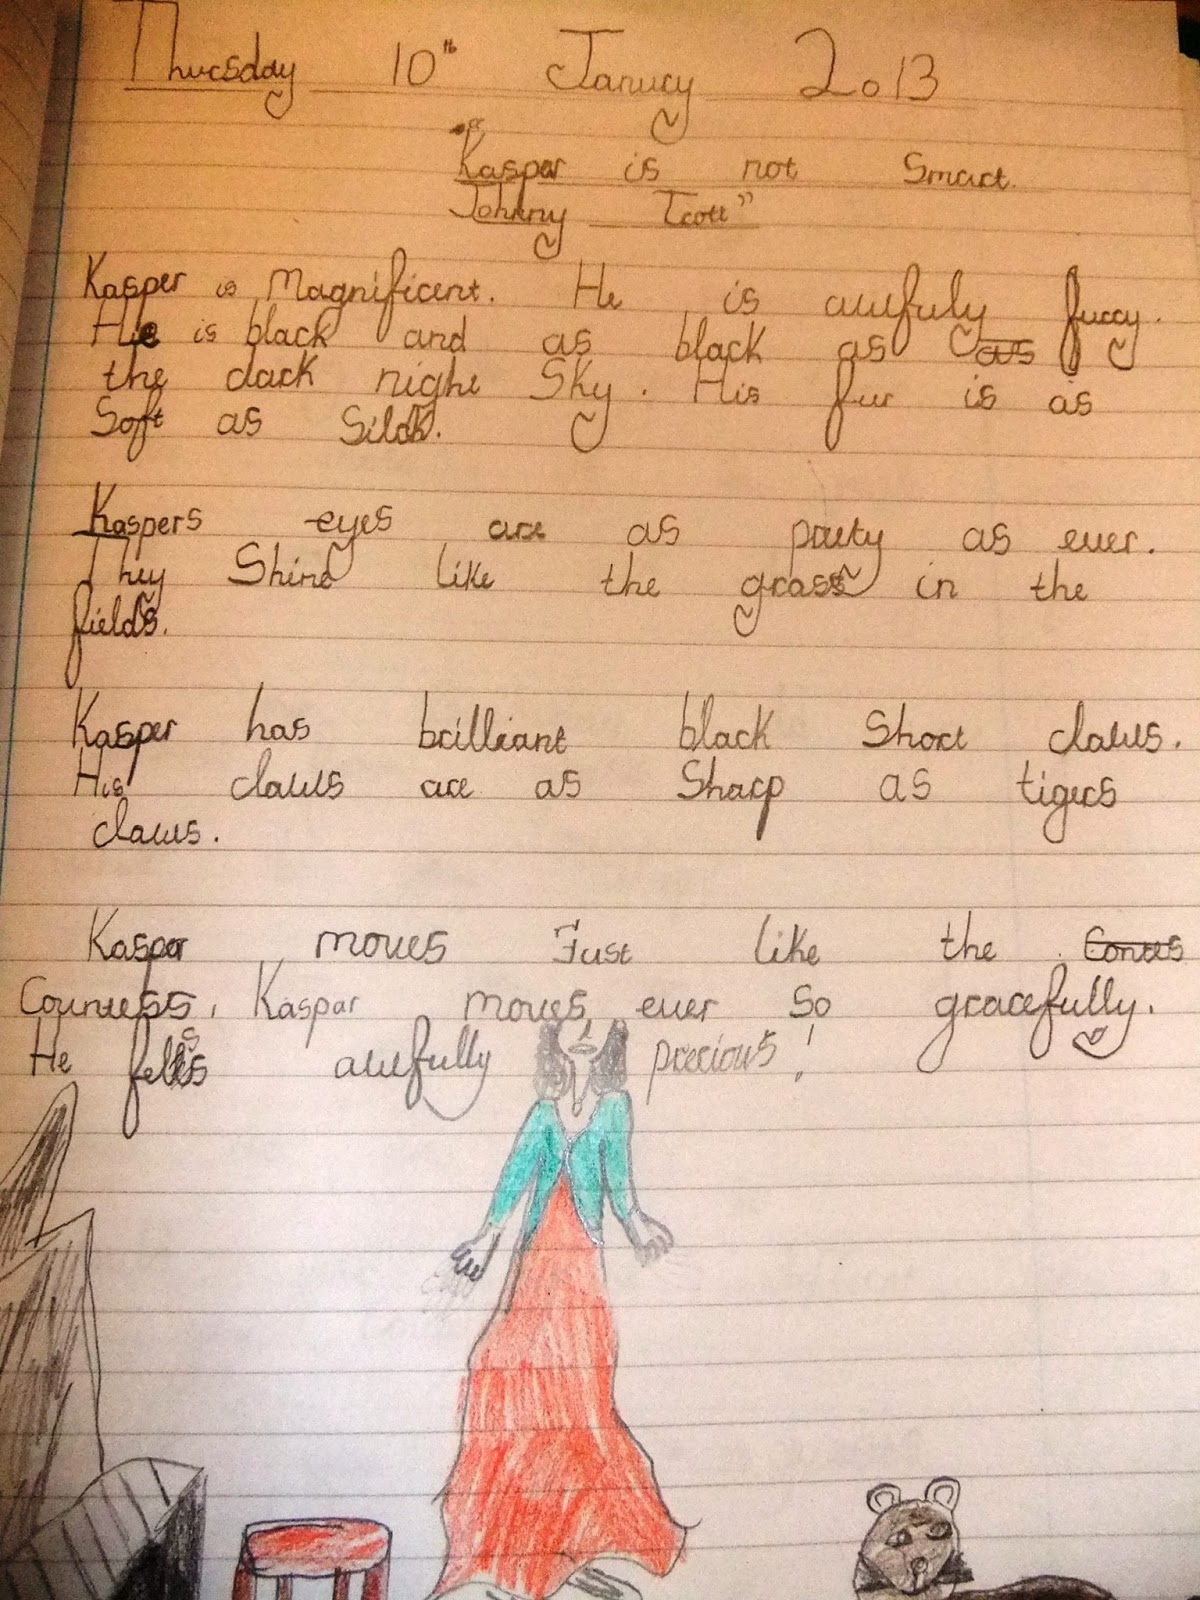 Thursday 10th Janury 2013
"Kaspar is not Smart.
Johnny Trott"
Kasper is Magnificent. He is awfuly furry.
He is black and as black as as
the dark night Sky. His fur is as
Soft as Silk.
Kaspers eyes are as prety as ever.
They Shine like the grass in the
fields.
Kasper has brilliant black Short claws.
His claws are as Sharp as tigers
claws.
Kaspar moves Just like the
Countess, Kaspar moves ever so gracefully.
He fells awfully precious!